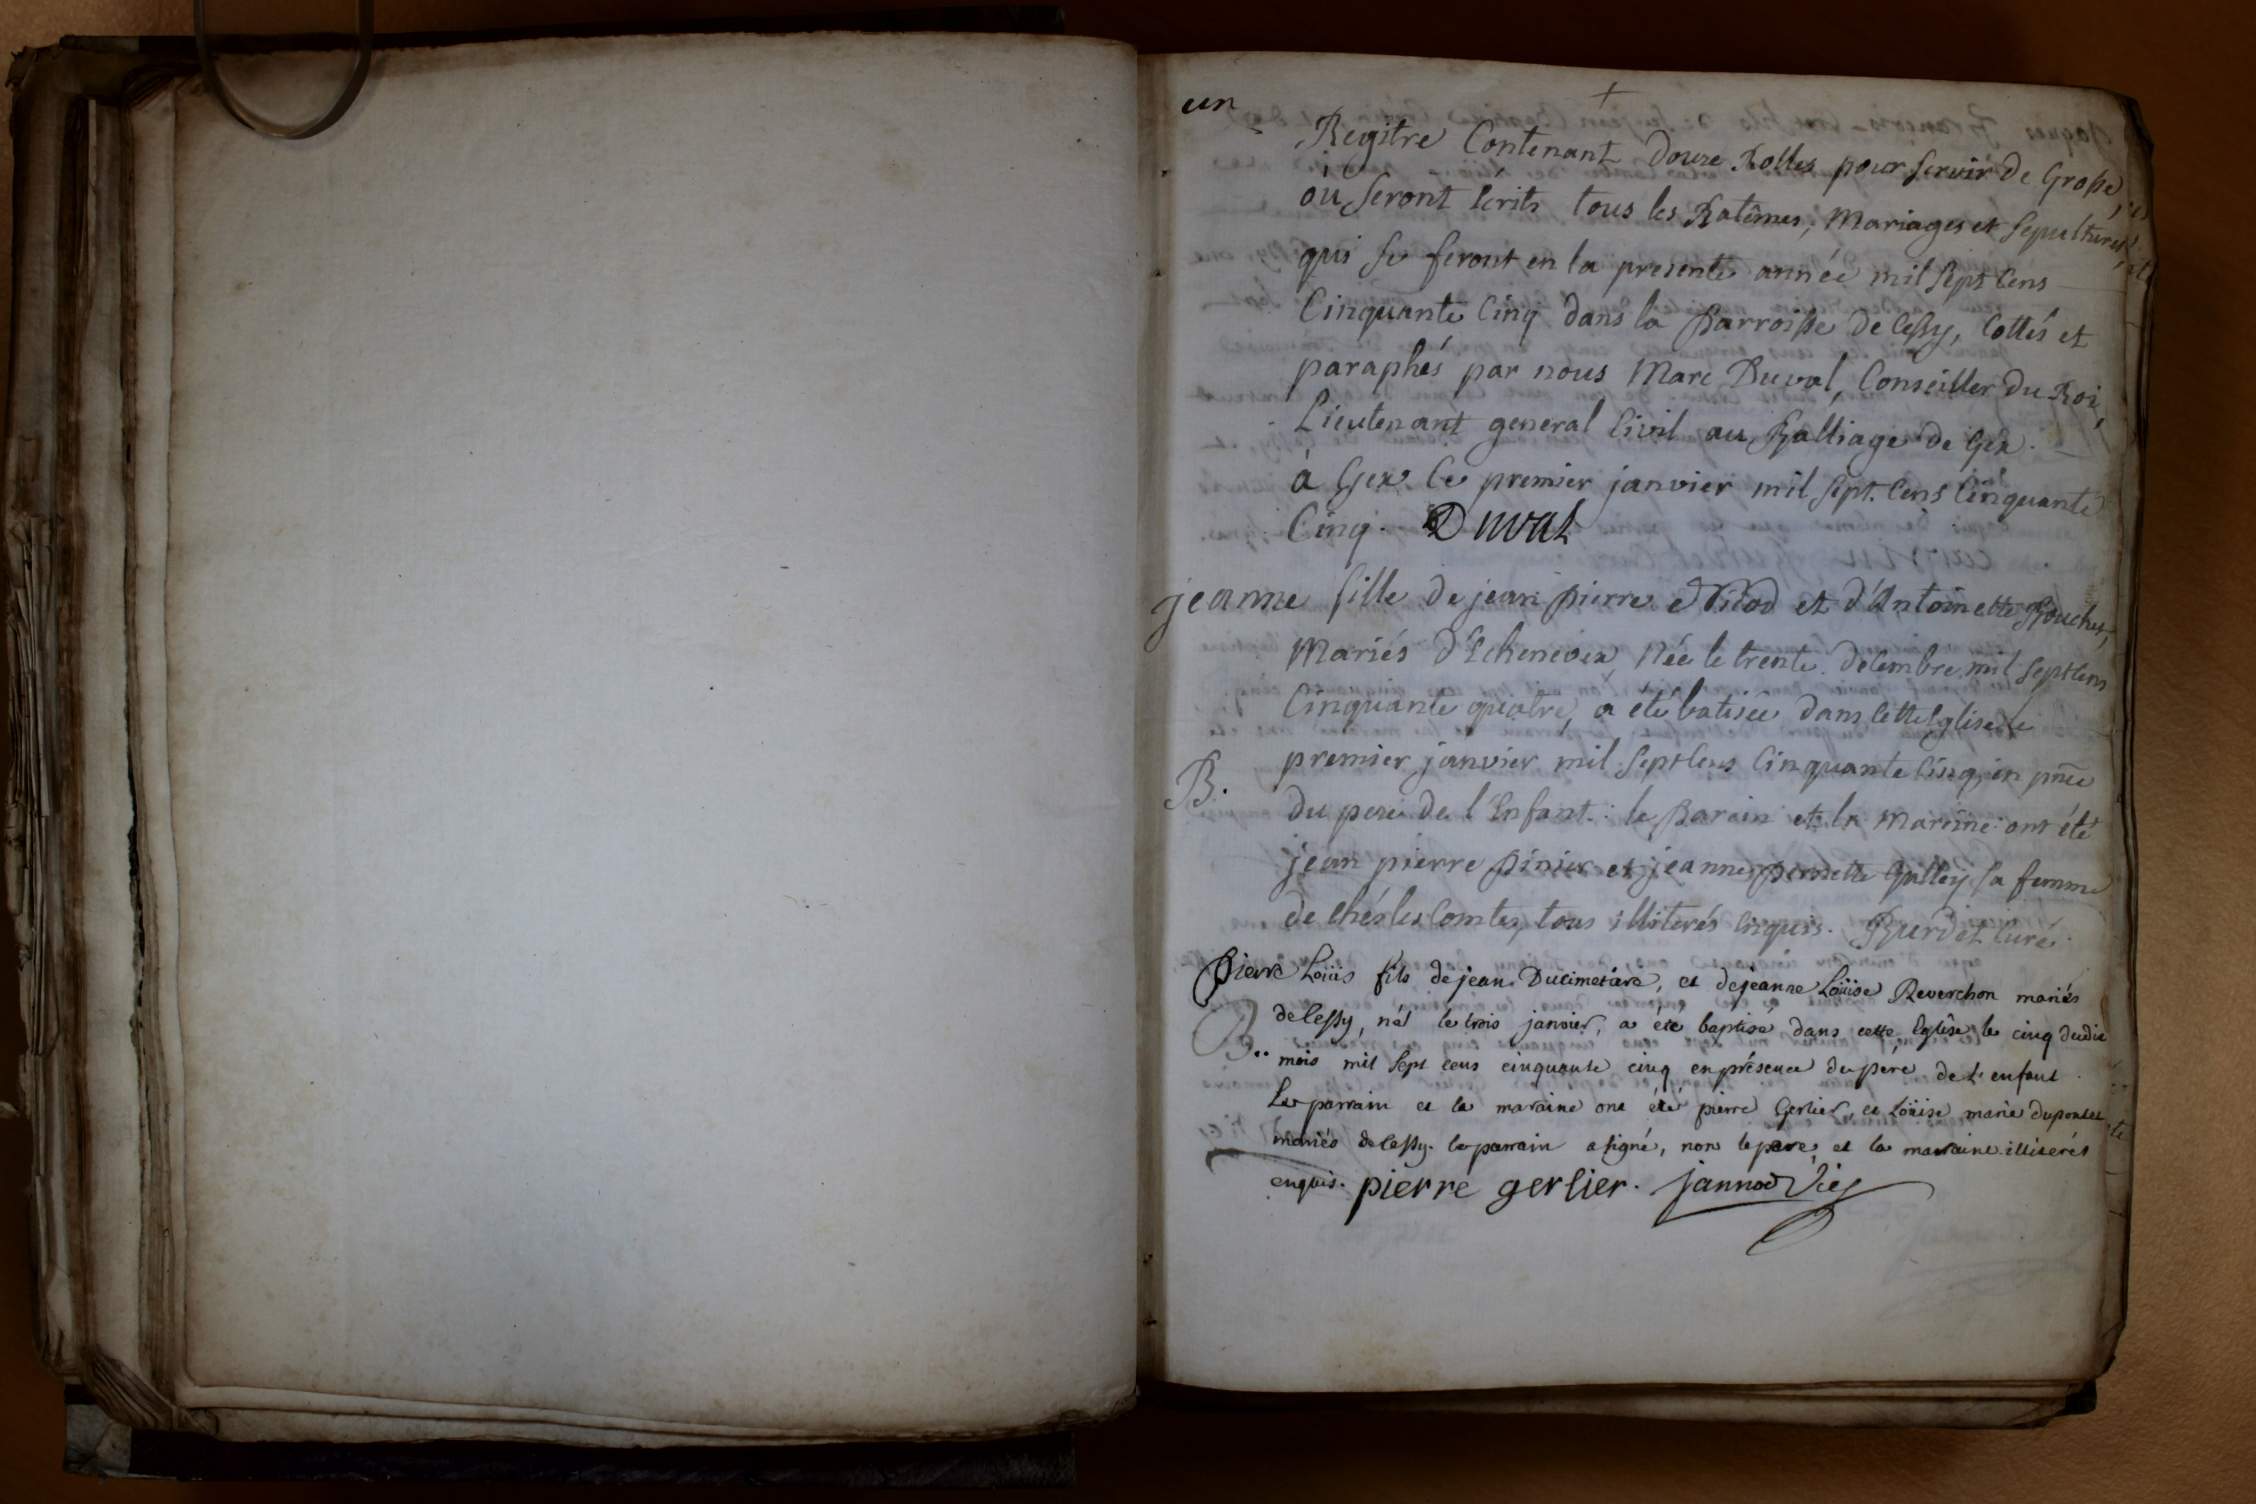 un
Regitre Contenant douze Rolles pour servir de Grosse,
où seront Ecrits tous les Batêmes, Mariages et sepultures,
qui se feront en la presente année mil sept cens
Cinquante Cinq dans la Parroisse de Cessy, Cottés et
paraphés par nous Marc Duval, Conseiller du Roi,
Lieutenant general Civil au Balliage de Gex.
à Gex le premier janvier mil sept. cens Cinquante
Cinq. Duval
jeanne fille de jean pierre Nicod et d'Antoinette Rouches,
Mariés d'Echenevex, Née le trente decembre mil sept cens
Cinquante quatre, a été batisée dans cette Eglise le
premier janvier mil sept cens Cinquante Cinq, en pñce
B.
du pere de l'Enfant: le Parain et la Marêne ont été
jean pierre Pinier et jeanne pernette Galley sa femme
de Chés les Comtes, tous illiterés enquis. Burdet Curé.
Pierre Loüis fils de jean Ducimetiere, et de jeanne Loüise Reverchon mariés
de Cessy, né le trois janvier, a été baptisé dans cette Eglise le cinq dudit
B..
mois mil sept cens cinquante cinq en présence du père de l'enfant.
Le parrain et la maraine ont été pierre Gerlier, et Loüise marie duponts
mariés de Cessy. le parrain a signé, non le pere, et la marraine illiterés
enquis. pierre gerlier. jannod Vic